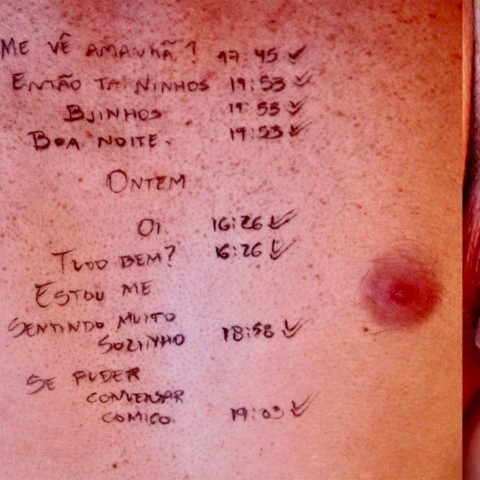 ME VÊ AMANHÃ? 17:45
ENTÃO TA NINHOS 19:53
BJINHOS 19:53
BOA NOITE. 19:53
ONTEM
OI 16:26
TUDO BEM? 16:26
ESTOU ME
SENTINDO MUITO
SOZINHO 18:58
SE PUDER
CONVERSAR
COMIGO. 19:03